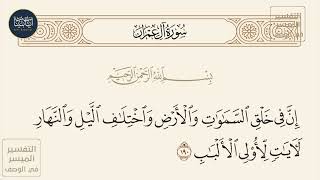 سُورَةُ آلِ عِمْرَان
بِسْمِ اللَّهِ الرَّحْمَٰنِ الرَّحِيمِ
إِنَّ فِي خَلْقِ السَّمَٰوَٰتِ وَالْأَرْضِ وَاخْتِلَٰفِ الَّيْلِ وَالنَّهَارِ
لَأٓيَٰتٍ لِّأُو۟لِي الْأَلْبَٰبِ ١٩٠
التفسير
الميسر
في الوصف
التفسير
الميسر
في الوصف